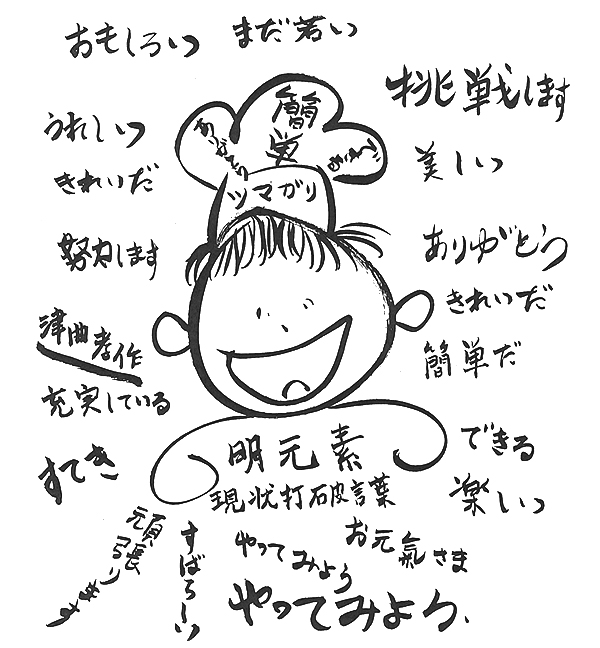 おもしろい
まだ若い
挑戦します
うれしい
きれいだ
努力します
津曲孝作
充実している
すてき
簡単
ツマガリ
美しい
ありがとう
きれいだ
簡単だ
できる
楽しい
明元素
現状打破言葉
頑張ります
すばらしい
やってみよう
お元氣さま
やってみよう.